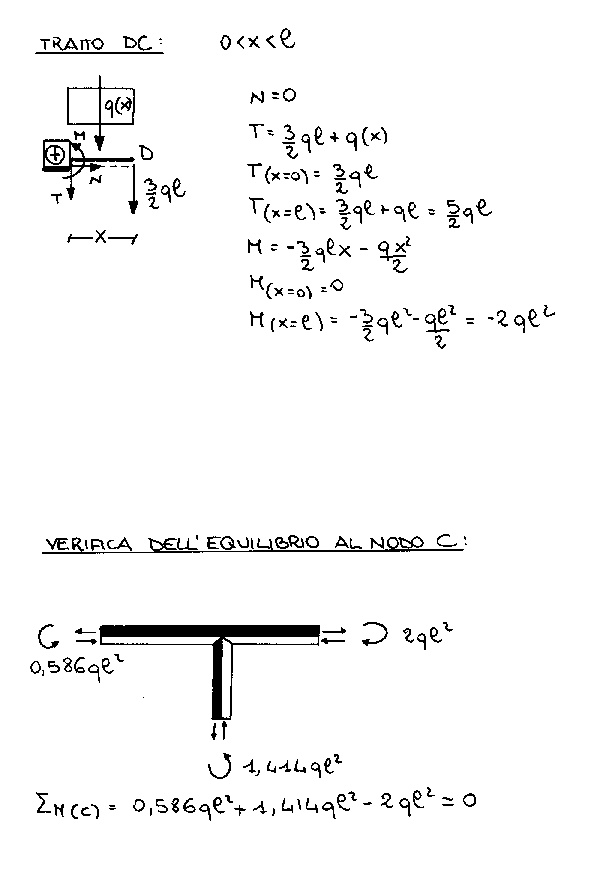 TRATTO DC: 0<x<ℓ
q(x)
M
D
N
T
3/2 qℓ
x
N=0
T= 3/2 qℓ + q(x)
T(x=0) = 3/2 qℓ
T(x=ℓ) = 3/2 qℓ + qℓ = 5/2 qℓ
M = -3/2 qℓx - qx²/2
M(x=0) = 0
M(x=ℓ) = -3/2 qℓ² - qℓ²/2 = -2qℓ²
VERIFICA DELL'EQUILIBRIO AL NODO C:
2qℓ²
0,586qℓ²
1,414qℓ²
ΣM(C) = 0,586qℓ² + 1,414qℓ² - 2qℓ² ≃ 0